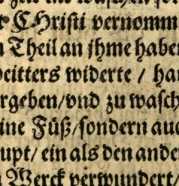 Christi vernomm
Theil an jhme habe
weitters widerte / ha
rgeben/vnd zu wasch
ine Füß/sondern auc
upt/ ein als den ande
Werck verwundert/